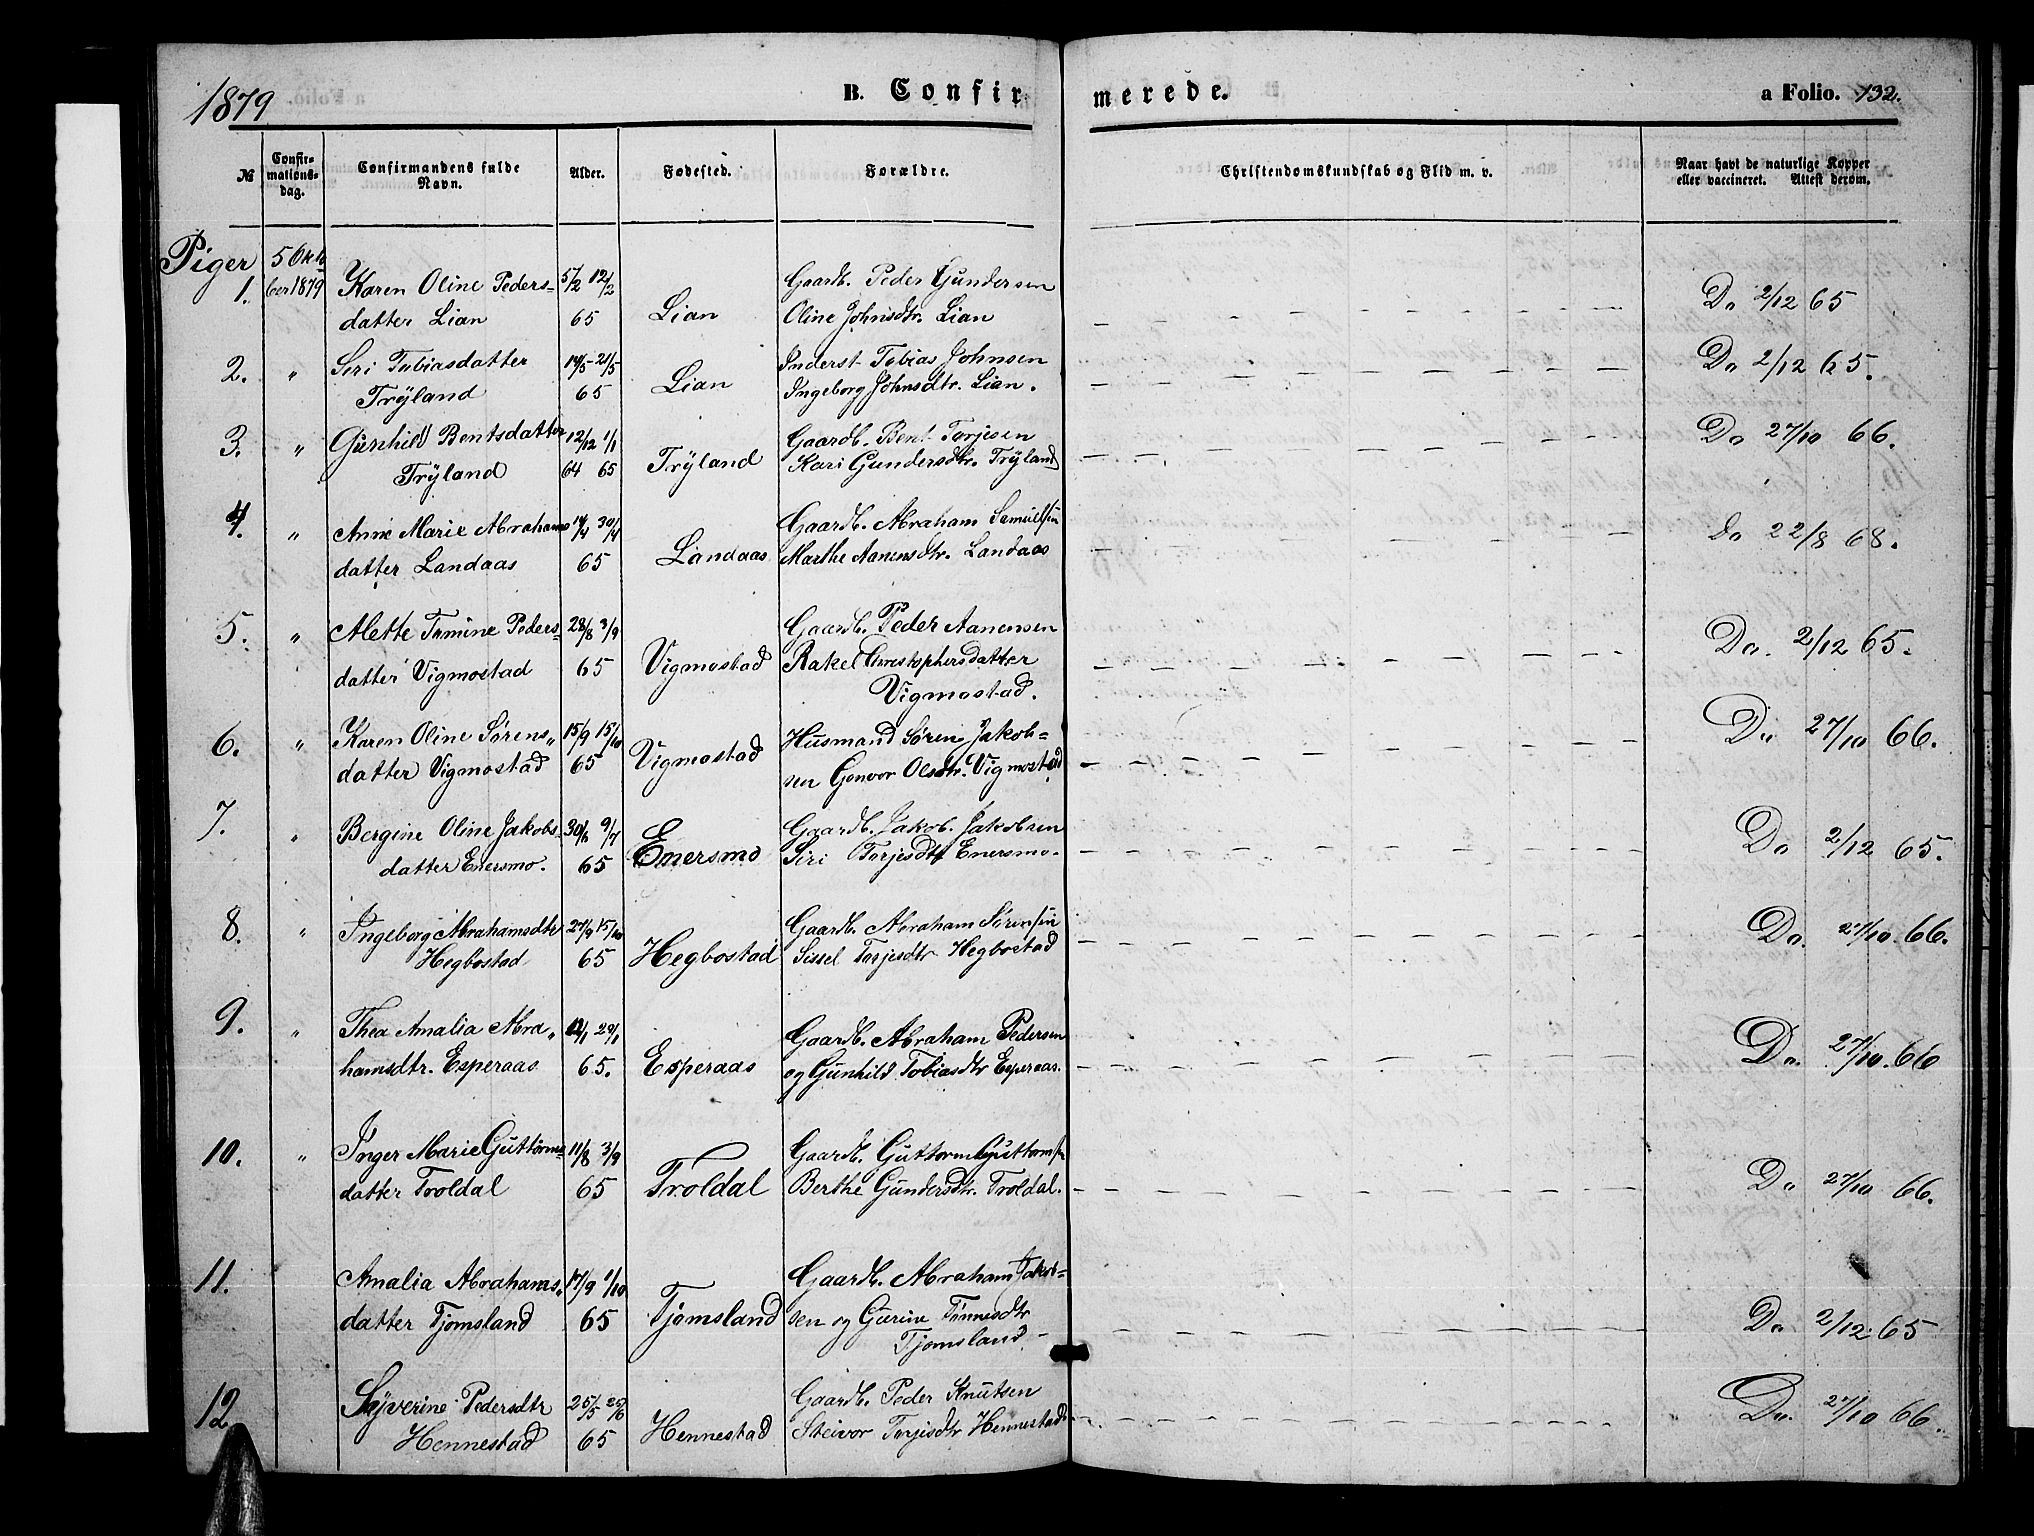 1879
B. Confirmerede.
a Folio. 132.
№ Confirmationsdag. Confirmandens fulde Navn. Alder. Fødested. Forældre. Christendomskundskab og Flid m. v. Naar havt de naturlige Kopper eller vaccineret. Attest derom.
Piger 5 Okto
1. ber 1879 Karen Oline Peders- 5/2 12/2 Gaardb. Peder Gundersen Do 2/12 65
datter Lian 65 Lian Oline Johnsdtr. Lian
2. " Siri Tobiasdatter 14/5 - 21/5 Inderst Tobias Johnsen Do 2/12 65.
Trÿland 65 Lian Ingeborg Johnsdtr. Lian.
3. " Gunhild Bentsdatter 12/12 1/1 Gaardb. Bent Torjesen Do 27/10 66.
Trÿland 64 65 Trÿland Kari Gundersdtr. Trÿland
4. " Anne Marie Abrahams 14/4 30/4 Gaardb. Abraham Samuelsen Do 22/8 68.
datter Landaas 65 Landaas Marthe Aanensdtr. Landaas
5. " Alette Tomine Peders- 28/8 3/9 Gaardb. Peder Aanensen Do. 2/12 65.
datter Vigmostad 65 Vigmostad Rakel Christophersdatter
Vigmostad.
6. " Karen Oline Sørens„ 15/9 15/10 Husmand Søren Jakob= Do 27/10 66.
datter Vigmostad 65 Vigmostad sen Gonvor Olsdtr. Vigmostad
7. " Bergine Oline Jakobs- 30/6 9/7 Gaardb. Jakob Jakobsen Do 2/12 65.
datter Enersmo. 65 Enersmo Siri Torjesdtr Enersmo.
8. " Ingeborg Abrahamsdtr 27/9 15/10 Gaardb. Abraham Sørensen Do. 27/10. 66.
Hegbostad 65 Hegbostad Sissel Torjesdtr Hegbostad
9. " Thea Amalia Abra„ 29/1 Gaardb. Abraham Pedersen Do. 27/10. 66
hamsdtr. Esperaas 65. Esperaas og Gunhild Tobiasdtr Esperaas.
10. " Inger Marie Guttorms= 11/8 3/9 Gaardb. Guttorm Guttormsen Do 27/10 66.
datter Troldal 65 Troldal Berthe Gundersdtr. Troldal.
11. Amalia Abrahams„ 17/9 1/10 Gaardb. Abraham Jakob=
datter Tjomsland 65 Tjomsland sen og Gurine Tønnesdtr Do 2/12 65
Tjomsland
12 Syverine Pedersdtr 25/5 25/6 Gaardb. Peder Knutsen Do. 27/10 66.
Hennestad 65 Hennestad Steivor Torjesdtr Hennestad